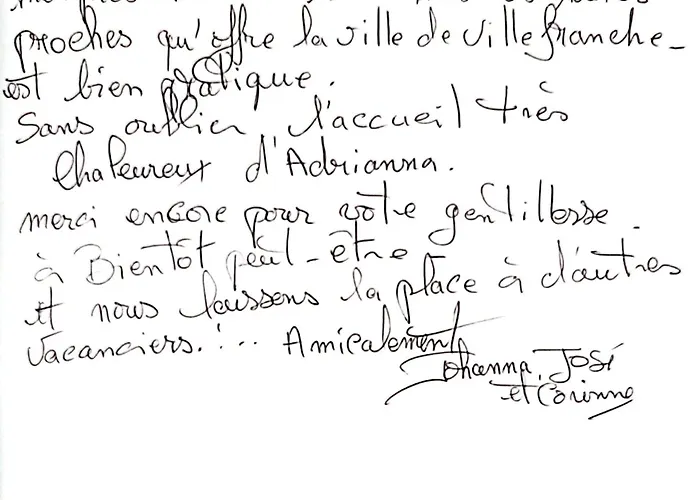 proches qu'offre la ville de villefranche-
est bien pratique.
Sans oublier l'accueil très
Chaleureux d'Adrianna.
merci encore pour votre gentillesse.
à Bientôt peut-être
et nous laissons la place à d'autres
Vacanciers.!... Amicalement
Johanna, José
et Corinne